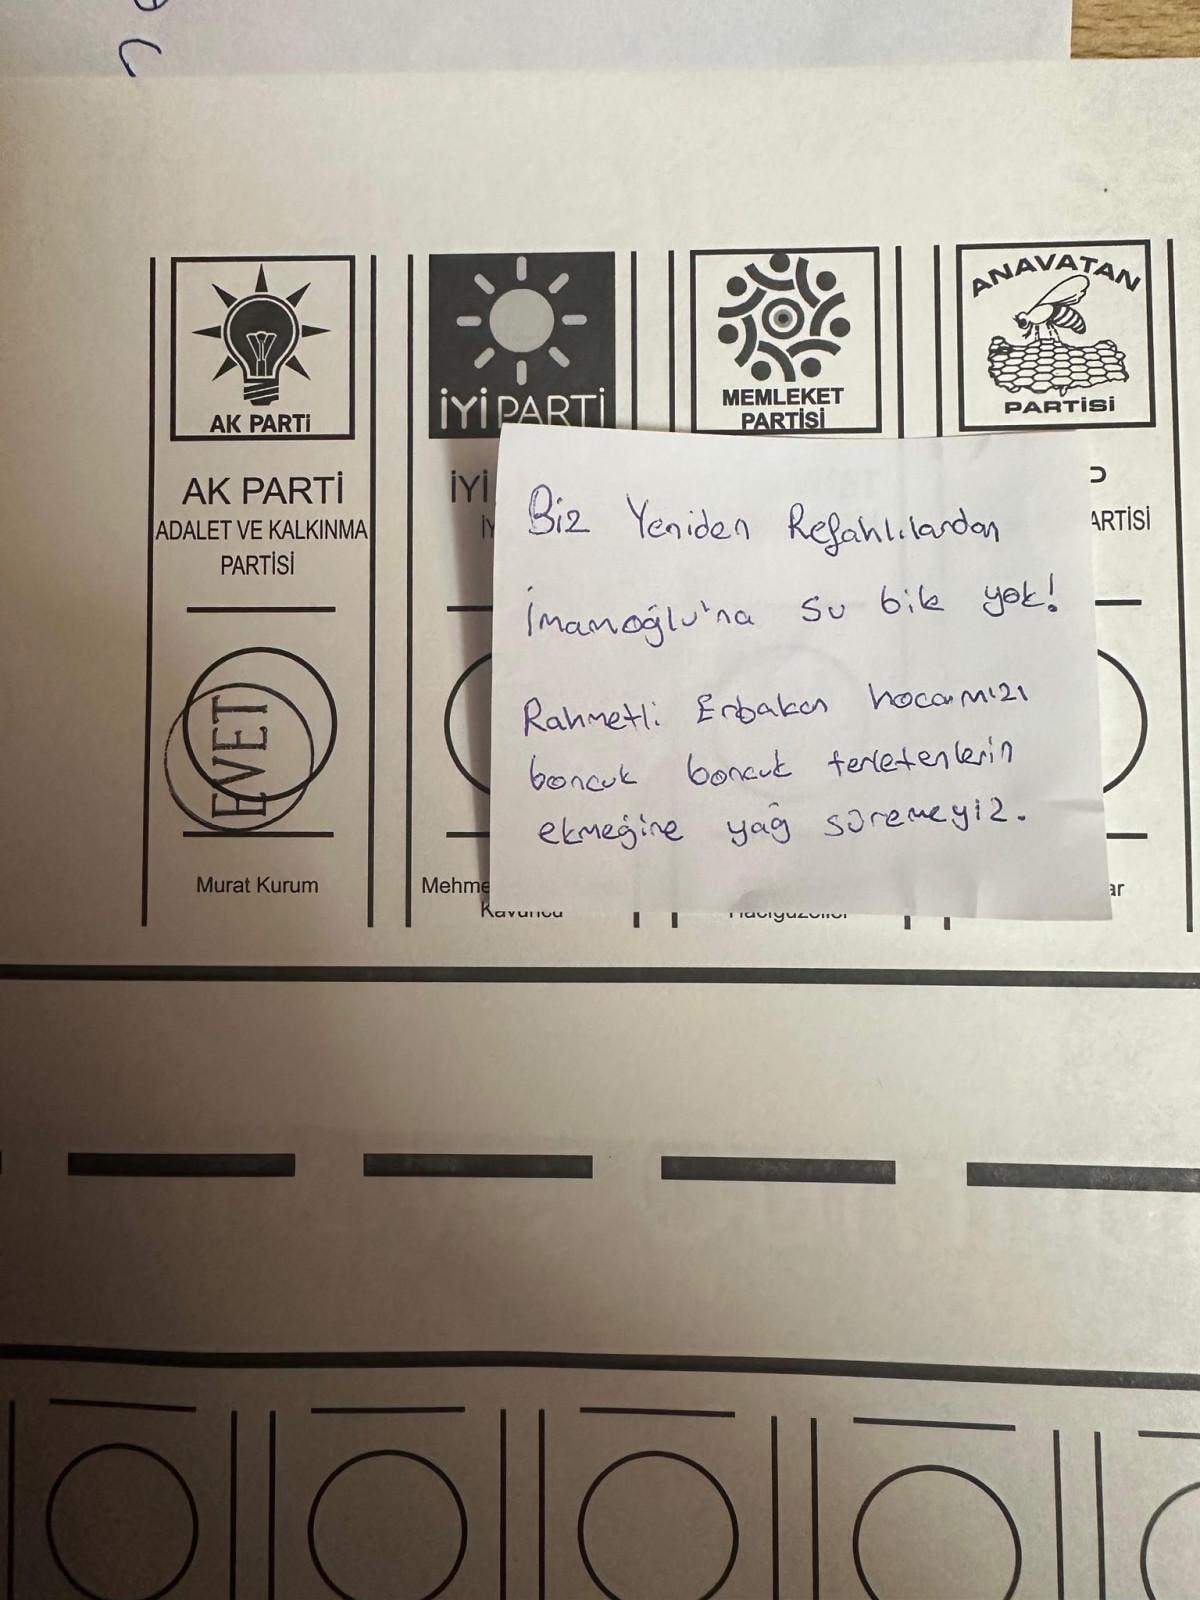 AK PARTİ
İYİ PARTİ
MEMLEKET
PARTİSİ
ANAVATAN
PARTİSİ
AK PARTİ
ADALET VE KALKINMA
PARTİSİ
İYİ
ARTİSİ
Biz Yeniden Refahlılardan
İmamoğlu'na su bile yok!
Rahmetli Erbakan hocamızı
boncuk boncuk terletenlerin
ekmeğine yağ süremeyiz.
EVET
Murat Kurum
Mehme
Kavuncu
Hacıgüzeller
ar